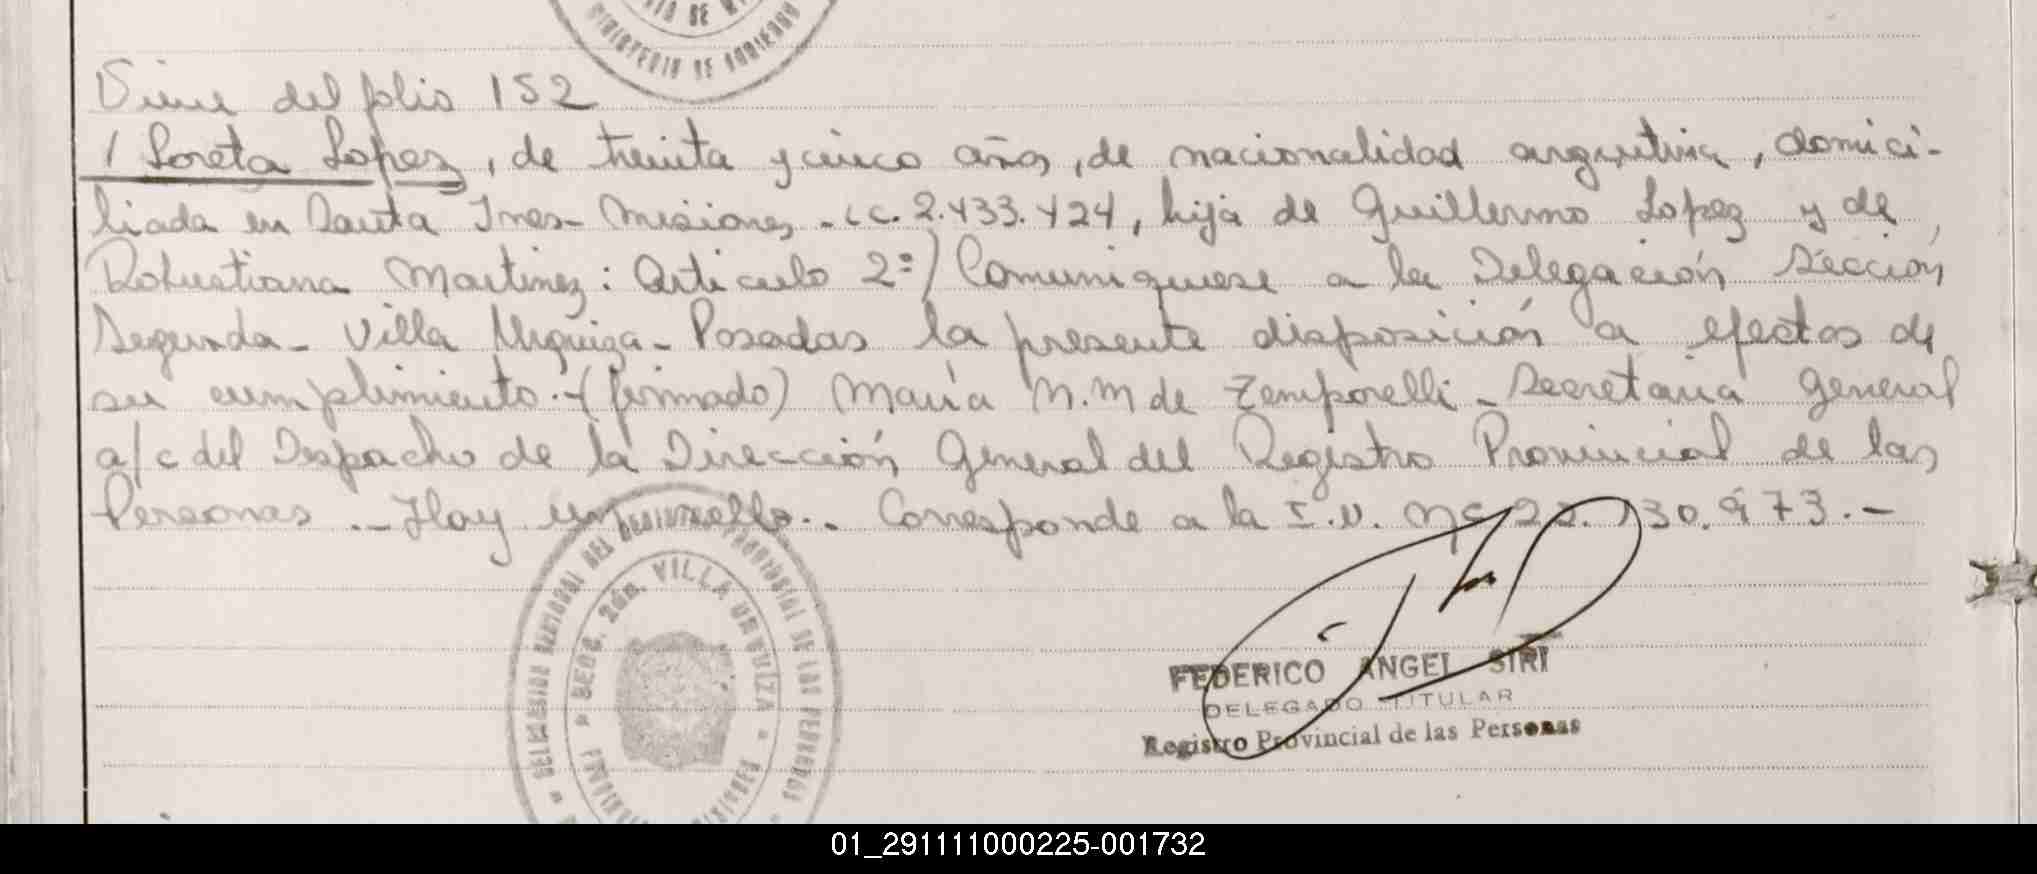 MINISTERIO DE GOBIERNO
Viene del folio 152
/ Loreta Lopez, de treinta y cinco años, de nacionalidad argentina, domici-
liada en Santa Ines - Misiones - L.C. 2.433.424, hija de Guillermo Lopez y de
Robustiana Martinez: Articulo 2º) Comuniquese a la Delegación Sección
Segunda - Villa Urquiza - Posadas la presente disposición a efectos de
su cumplimiento.- (firmado) María N. M de Temporelli - Secretaria General
a/c del Despacho de la Dirección General del Registro Provincial de las
Personas .- Hay un sello.. Corresponde a la I.D. Nº 130.973.-
SECC. 2da. VILLA URQUIZA
PROVINCIAL DE LAS PERSONAS
FEDERICO ANGEL SIRI
DELEGADO TITULAR
Registro Provincial de las Personas
01_291111000225-001732